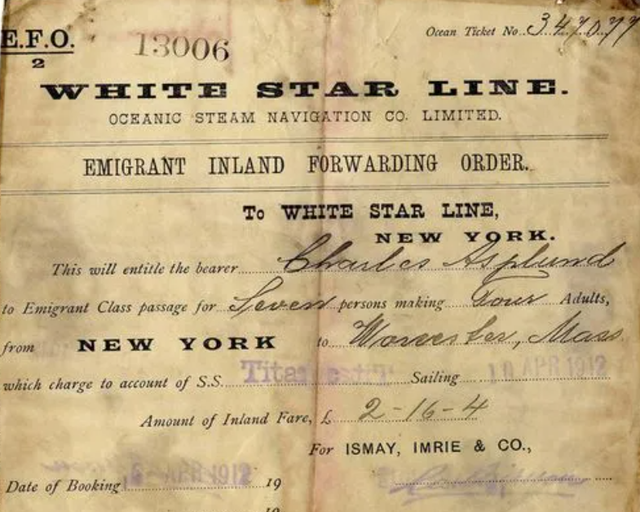 E.F.O.
2
13006
Ocean Ticket No. 347077
WHITE STAR LINE.
OCEANIC STEAM NAVIGATION CO. LIMITED.
EMIGRANT INLAND FORWARDING ORDER.
To WHITE STAR LINE,
NEW YORK.
This will entitle the bearer Charles Asplund
to Emigrant Class passage for Seven persons making Four Adults,
from NEW YORK to Worcester, Mass
which charge to account of S.S. Sailing 10 APR 1912
Amount of Inland Fare, £ 2-16-4
For ISMAY, IMRIE & CO.,
Date of Booking APR 1912 19
19